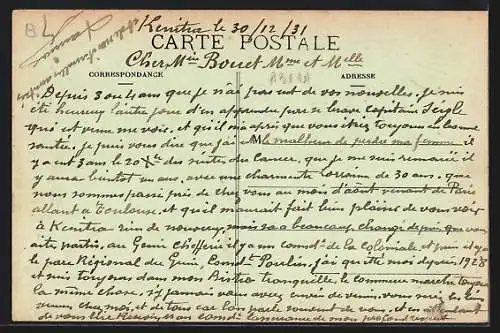 Kenitra le 30/12/31
CARTE POSTALE
Cher Mr Bouet Mme et Melle
CORRESPONDANCE ADRESSE
Depuis 3 ou 4 ans que je n'ai pas eut de vos nouvelles, je suis
été heureux l'autre jour d'en apprendre par le brave Capitain
qui est venu me voir, et qu'il m'a apris que vous étiez toujours en bonne
santé, je puis vous dire que j'ai M le malheur de perdre ma femme il
y a eut 3 ans le 20 Xbre des suites du Cancer, que je me suis remarié il
y aura bientot un ans, avec une charmante Lorraine de 30 ans, que
nous sommes passé près de chez vous au mois d'août venant de Paris
allant à Toulouse, et qu'il m'aurait fait bien plaisir de vous voir
à Kenitra rien de nouveau, mais sa a beaucoup changé depuis que vous
aite partis, au Genie chefferie il y a un Comdt de la Coloniale et puis il y a
le parc Régional du Genie, Comdt Poulin, j'ai quitté moi depuis 1928
et suis toujours dans mon Bistro tranquille, le commerce marche toujours
la même chose, si jamais vous avez envie de venir, vous
chez moi, et de tous cas